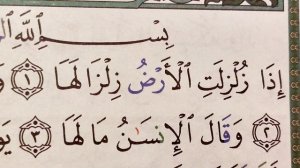 بِسْمِ ٱللَّهِ
إِذَا زُلْزِلَتِ ٱلْأَرْضُ زِلْزَالَهَا ١
٢ وَقَالَ ٱلْإِنسَٰنُ مَا لَهَا ٣